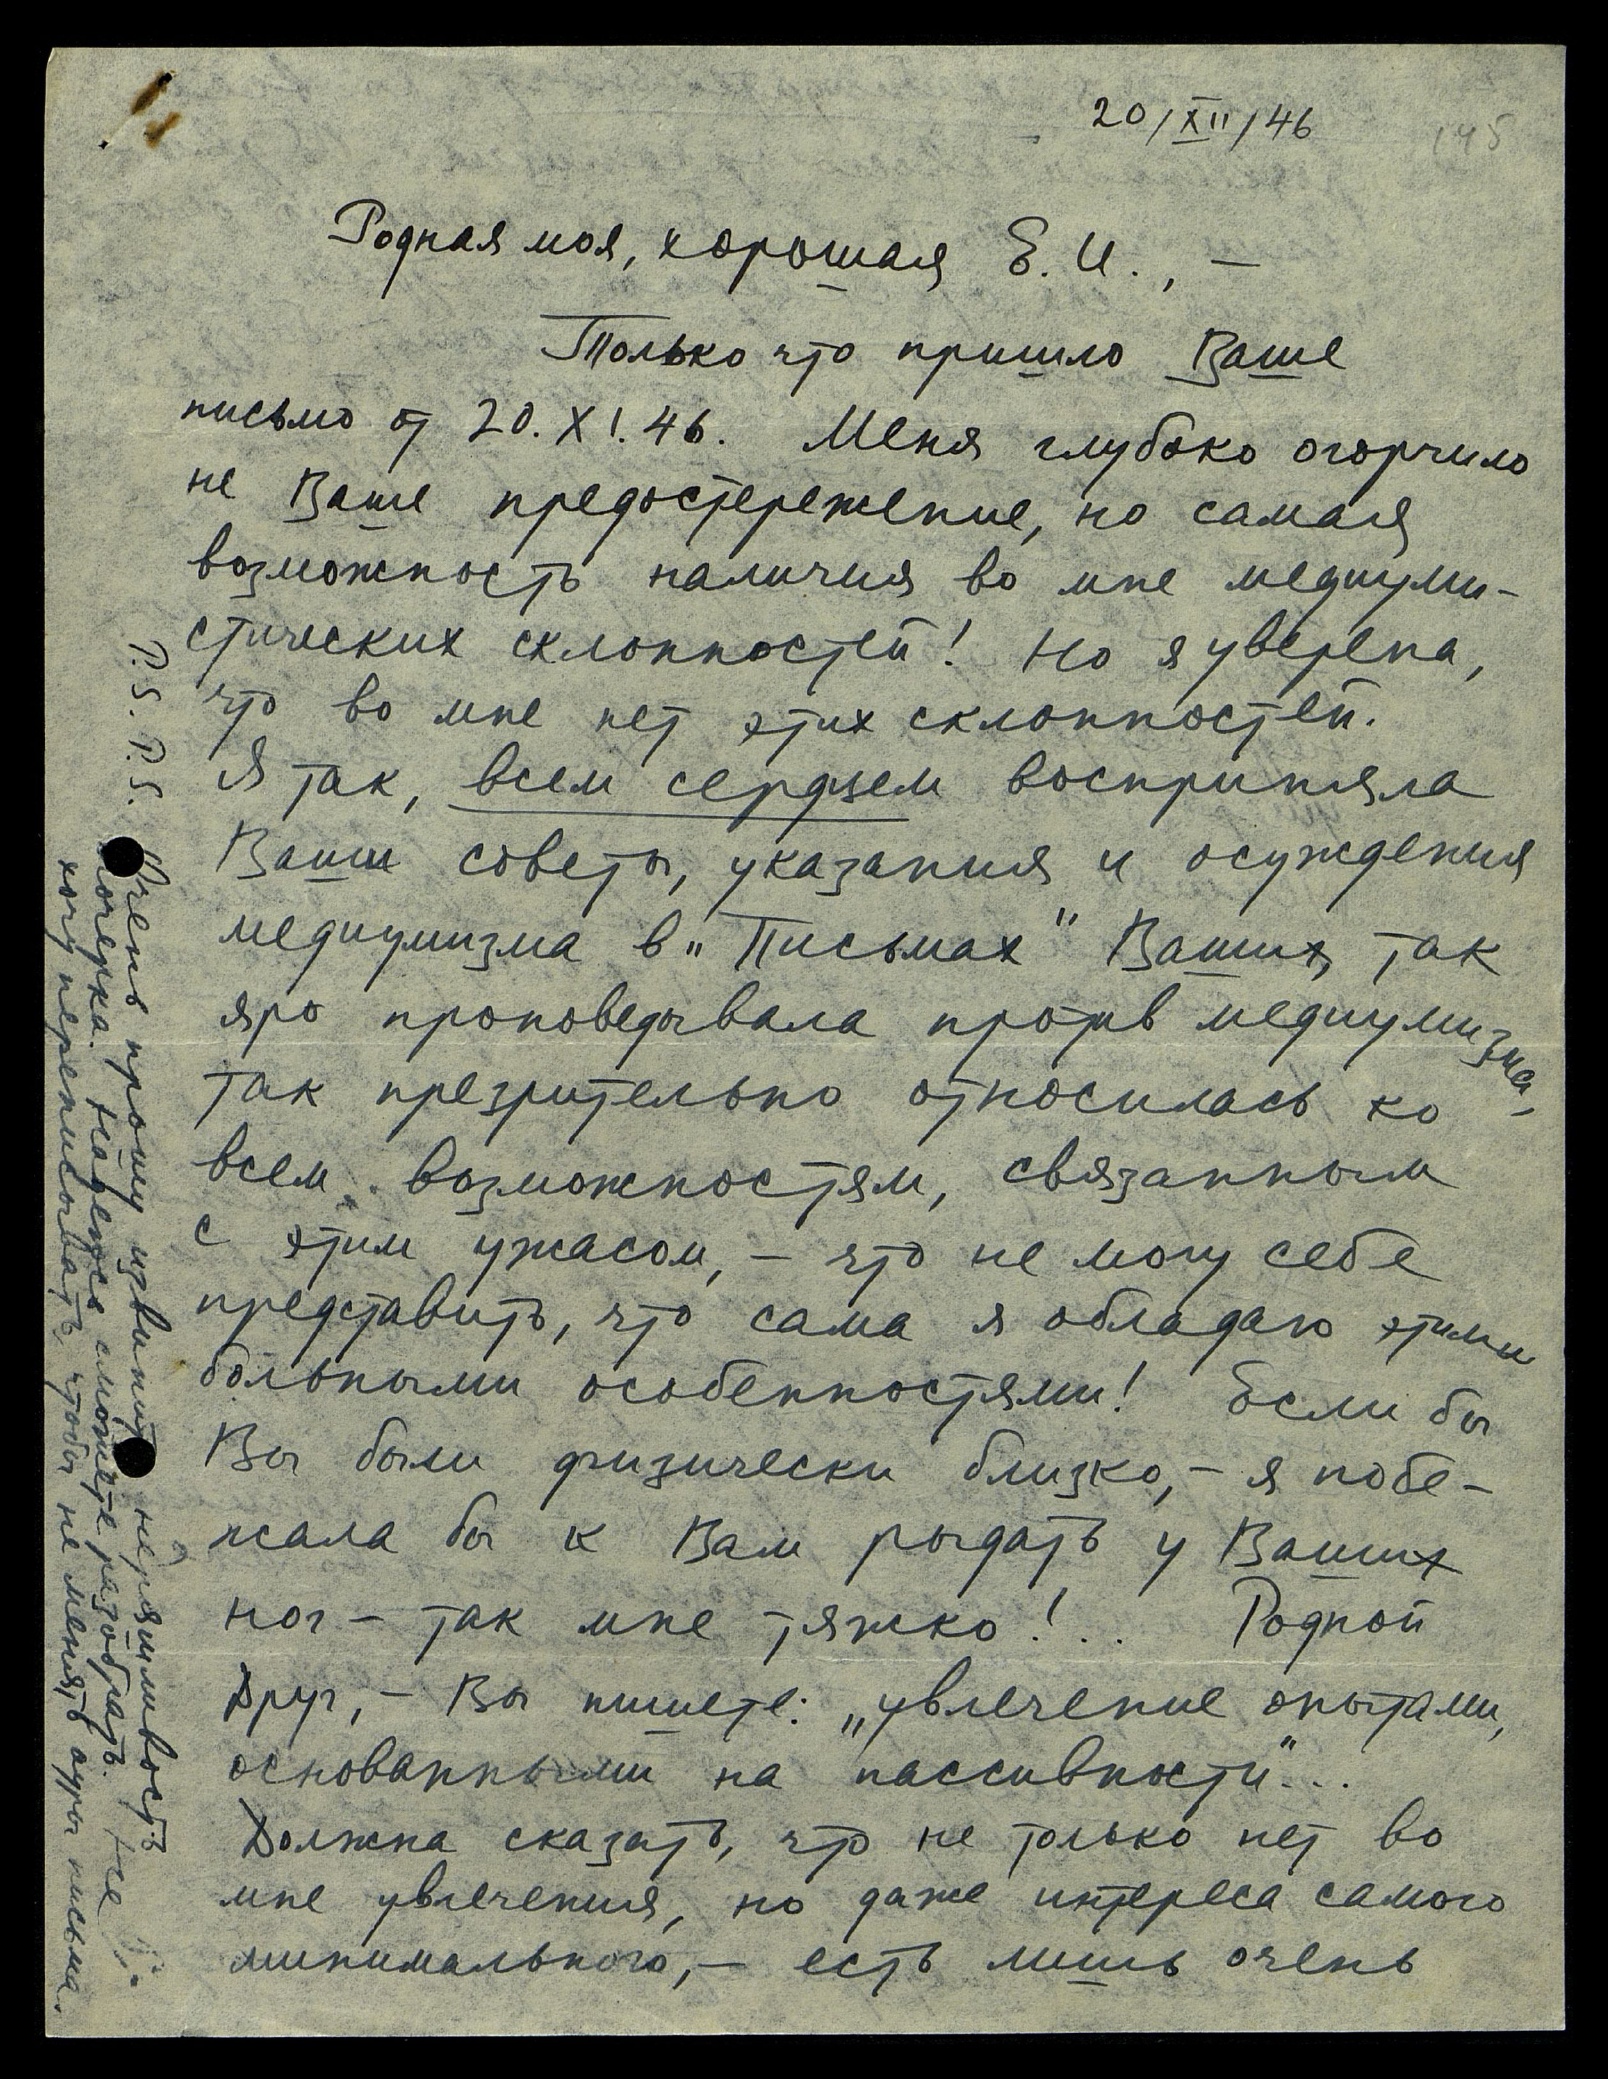 20/XII/46
145
Родная моя, хорошая Е. И., —
Только что пришло Ваше
письмо от 20.XI.46. Меня глубоко огорчило
не Ваше предостережение, но самая
возможность наличия во мне медиуми-
стических склонностей! Но я уверена,
что во мне нет этих склонностей.
Я так, всем сердцем восприняла
Ваши советы, указания и осуждения
медиумизма в „Письмах" Ваших, так
яро проповедывала против медиумизма,
так презрительно относилась ко
всем возможностям, связанным
с этим ужасом, — что не могу себе
представить, что сама я обладаю этими
больными особенностями! Если бы
Вы были физически близко, — я побе-
жала бы к Вам рыдать у Ваших
ног — так мне тяжко!.. Родной
Друг, — Вы пишете: „увлечение опытами,
основанными на пассивности"...
Должна сказать, что не только нет во
мне увлечения, но даже интереса самого
минимального, — есть лишь очень
P.S. P.S. Очень прошу извинить неряшливость
почерка. Надеюсь сможете разобрать. Не
хочу переписывать, чтобы не менять ауры письма.